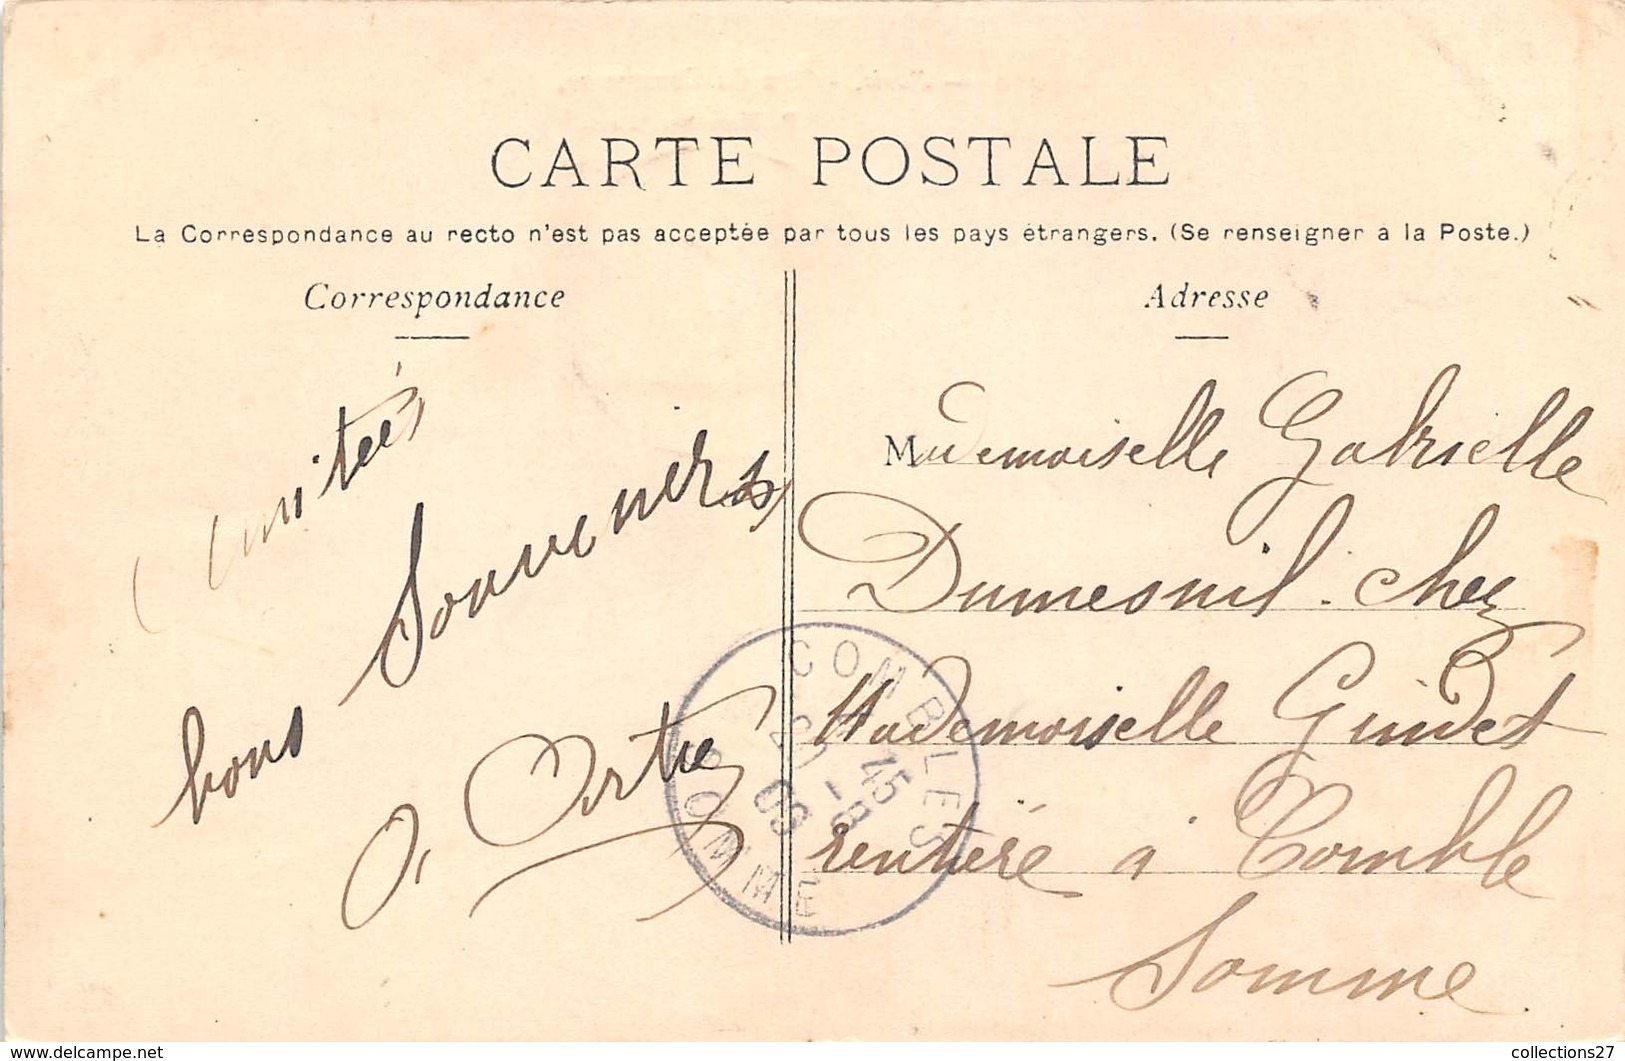 CARTE POSTALE
La Correspondance au recto n'est pas acceptée par tous les pays étrangers. (Se renseigner à la Poste.)
Correspondance
Amitiés
bons Souvenirs
Adresse
Mademoiselle Gabrielle
Dumesnil. chez
Mademoiselle Guidet
rentière à Comble
Somme
COMBLES
SOMME
45
20-8
09
www.delcampe.net
collections27